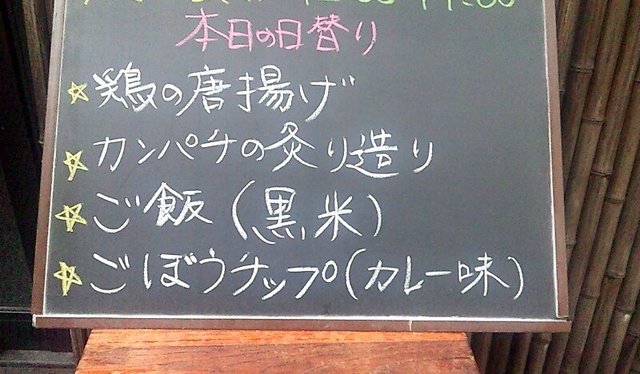 本日の日替り
☆鶏の唐揚げ
☆カンパチの炙り造り
☆ご飯(黒米)
☆ごぼうチップ(カレー味)